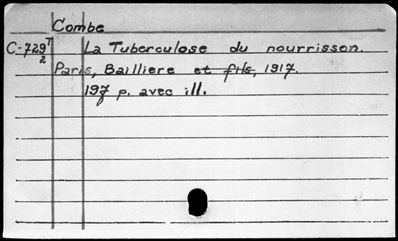 Combe
C-729⁷₂ La Tuberculose du nourrisson.
Paris, Bailliere et fils, 1917.
197 p. avec ill.